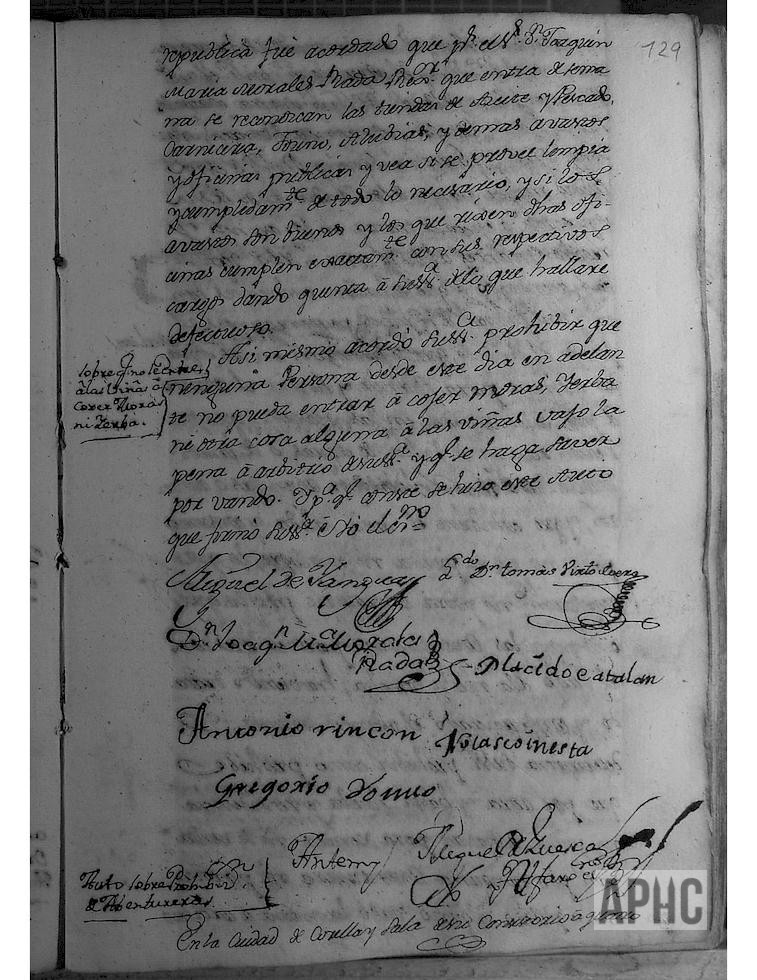 129
republica fue acordado que pr. el Sr. Dn. Joaquin
Maria Morales Rada Regr. que entra de sema
na se reconozcan las tiendas de Aceite y Pescado,
Carniceria, Forno, Aludias, y demas avastos
y oficinas publicas y vea si se provee limpia
y cumplidamte. de todo lo necesario, y si los
avastos son buenos y los que rixen dhas ofi-
cinas cumplen exactamte. con sus respectivos
cargos dando quenta â Suss.a de lo que hallare
defectuoso.
sobre q. no se entre
â las viñas â
cojer Moras
ni Yerba.
Asi mismo acordó Suss.a prohibir que
ninguna Persona desde este dia en adelan
te no pueda entrar â cojer moras, Yerba
ni otra cosa alguna â las viñas vajo la
pena â arbitrio de suss.a y q. se haga saver
por vando. Y pa. q. conste se hizo este Auto
que firmó Suss.a é Yo el ssno=
Miguel de Yanguas
Ldo. Dn. tomas
Dn. Joaqn. Ma. Morales
Rada
Placido Catalan
Antonio rincon
Blasco iniesta
Gregorio
Antemi
Miguel de Zuesca
Alfaro esno
Auto sobre Prohibir
de Abentureras.
En la Ciudad de Corella y Sala de su Consistorio a
APHC